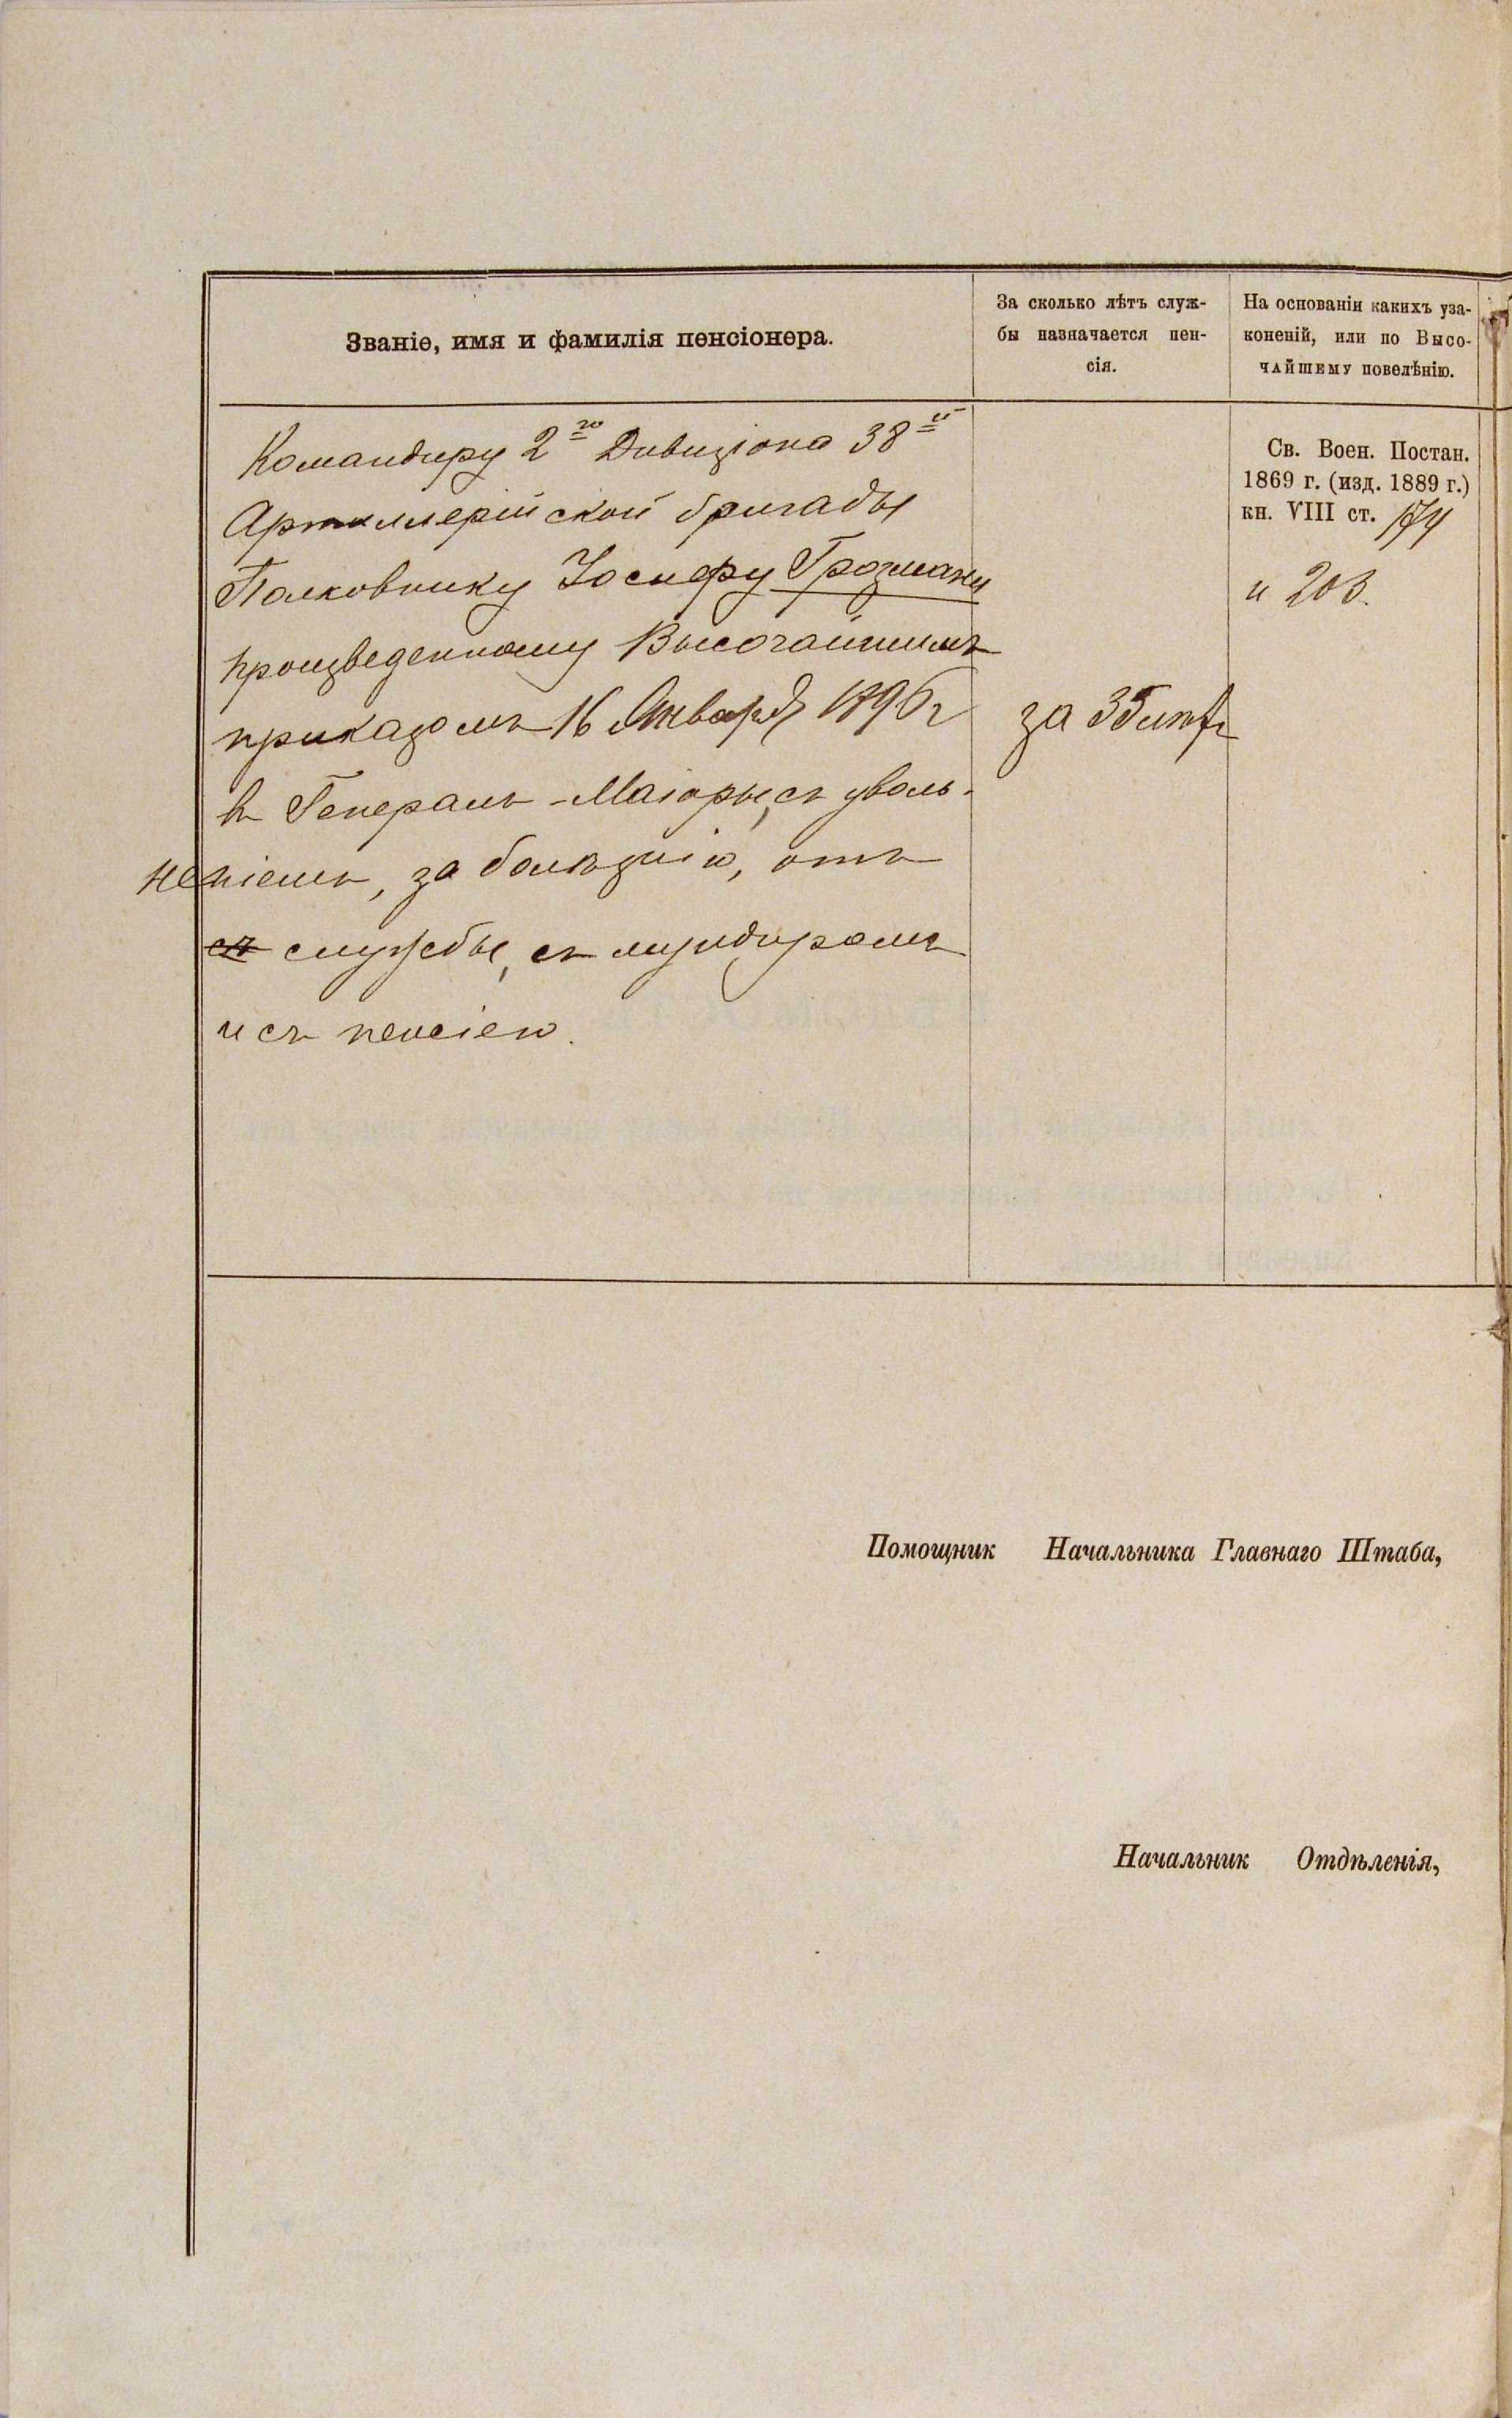 Званіе, имя и фамилія пенсіонера.
За сколько лѣтъ служ-
бы назначается пен-
сія.
На основаніи какихъ уза-
коненій, или по Высо-
чайшему повелѣнію.
Командиру 2го Дивизіона 38й
Артиллерійской бригады
Полковнику Іосифу Грозману
произведенному Высочайшимъ
приказомъ 16 Января 1896 г
въ Генералъ-Маіоры, съ уволь-
неніемъ, за болѣзнію, отъ
службы, съ мундиромъ
и съ пенсіею.
за 35 лѣтъ
Св. Воен. Постан.
1869 г. (изд. 1889 г.)
кн. VIII ст. 174
и 203.
Помощник Начальника Главнаго Штаба,
Начальник Отдѣленія,